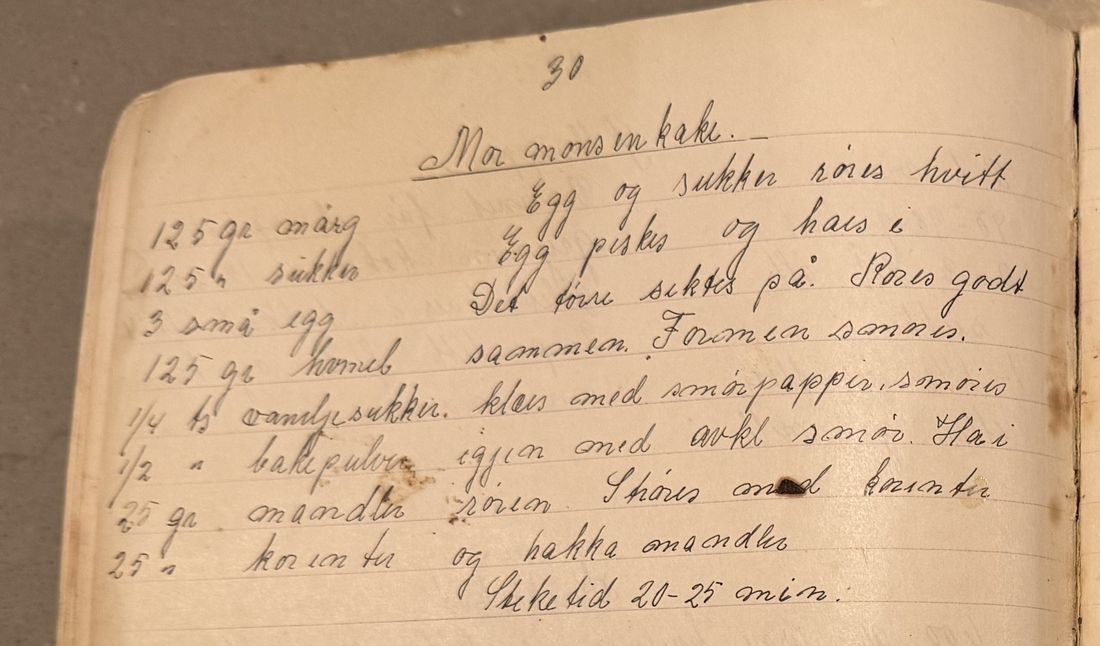 30
Mor monsen kake. –
125 gr marg
125 " sukker
3 små egg
125 gr hvmel
1/4 ts vaniljesukker.
1/2 " bakepulver
25 gr mandler
25 " korenter
Egg og sukker röres hvitt
Egg piskes og haes i
Det törre siktes på. Röres godt
sammen. Formen smöres.
kläes med smörpapper. smöres
igjen med avkl smör. Ha i
rören Ströres med korenter
og hakka mandler
Steketid 20-25 min.